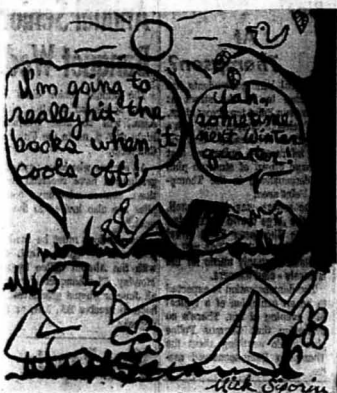 I'm going to
really hit the
books when it
cools off!
Yah,
sometime
next Winter
quarter!